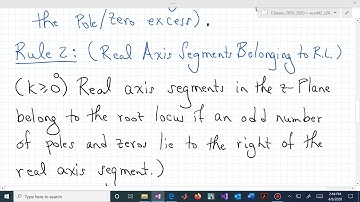 the Pole/zero excess).
Rule 2: (Real Axis Segments Belonging to R.L.)
(K≥0) Real axis segments in the z-Plane
belong to the root locus if an odd number
of poles and zeros lie to the right of the
real axis segment.)
Type here to search
2:44 PM
4/6/2020